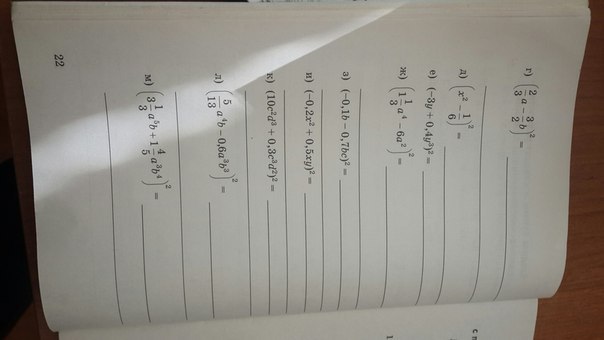 г) (2/3 a − 3/2 b)² =
д) (x² − 1/6)² =
е) (−3y + 0,4y³)² =
ж) (1 1/3 a⁴ − 6a²)² =
з) (−0,1b − 0,7bc)² =
и) (−0,2x² + 0,5xy)² =
к) (10c²d³ + 0,3c³d²)² =
л) (5/13 a⁴b − 0,6a³b³)² =
м) (3 1/3 a⁵b + 1 4/5 a³b⁴)² =
22